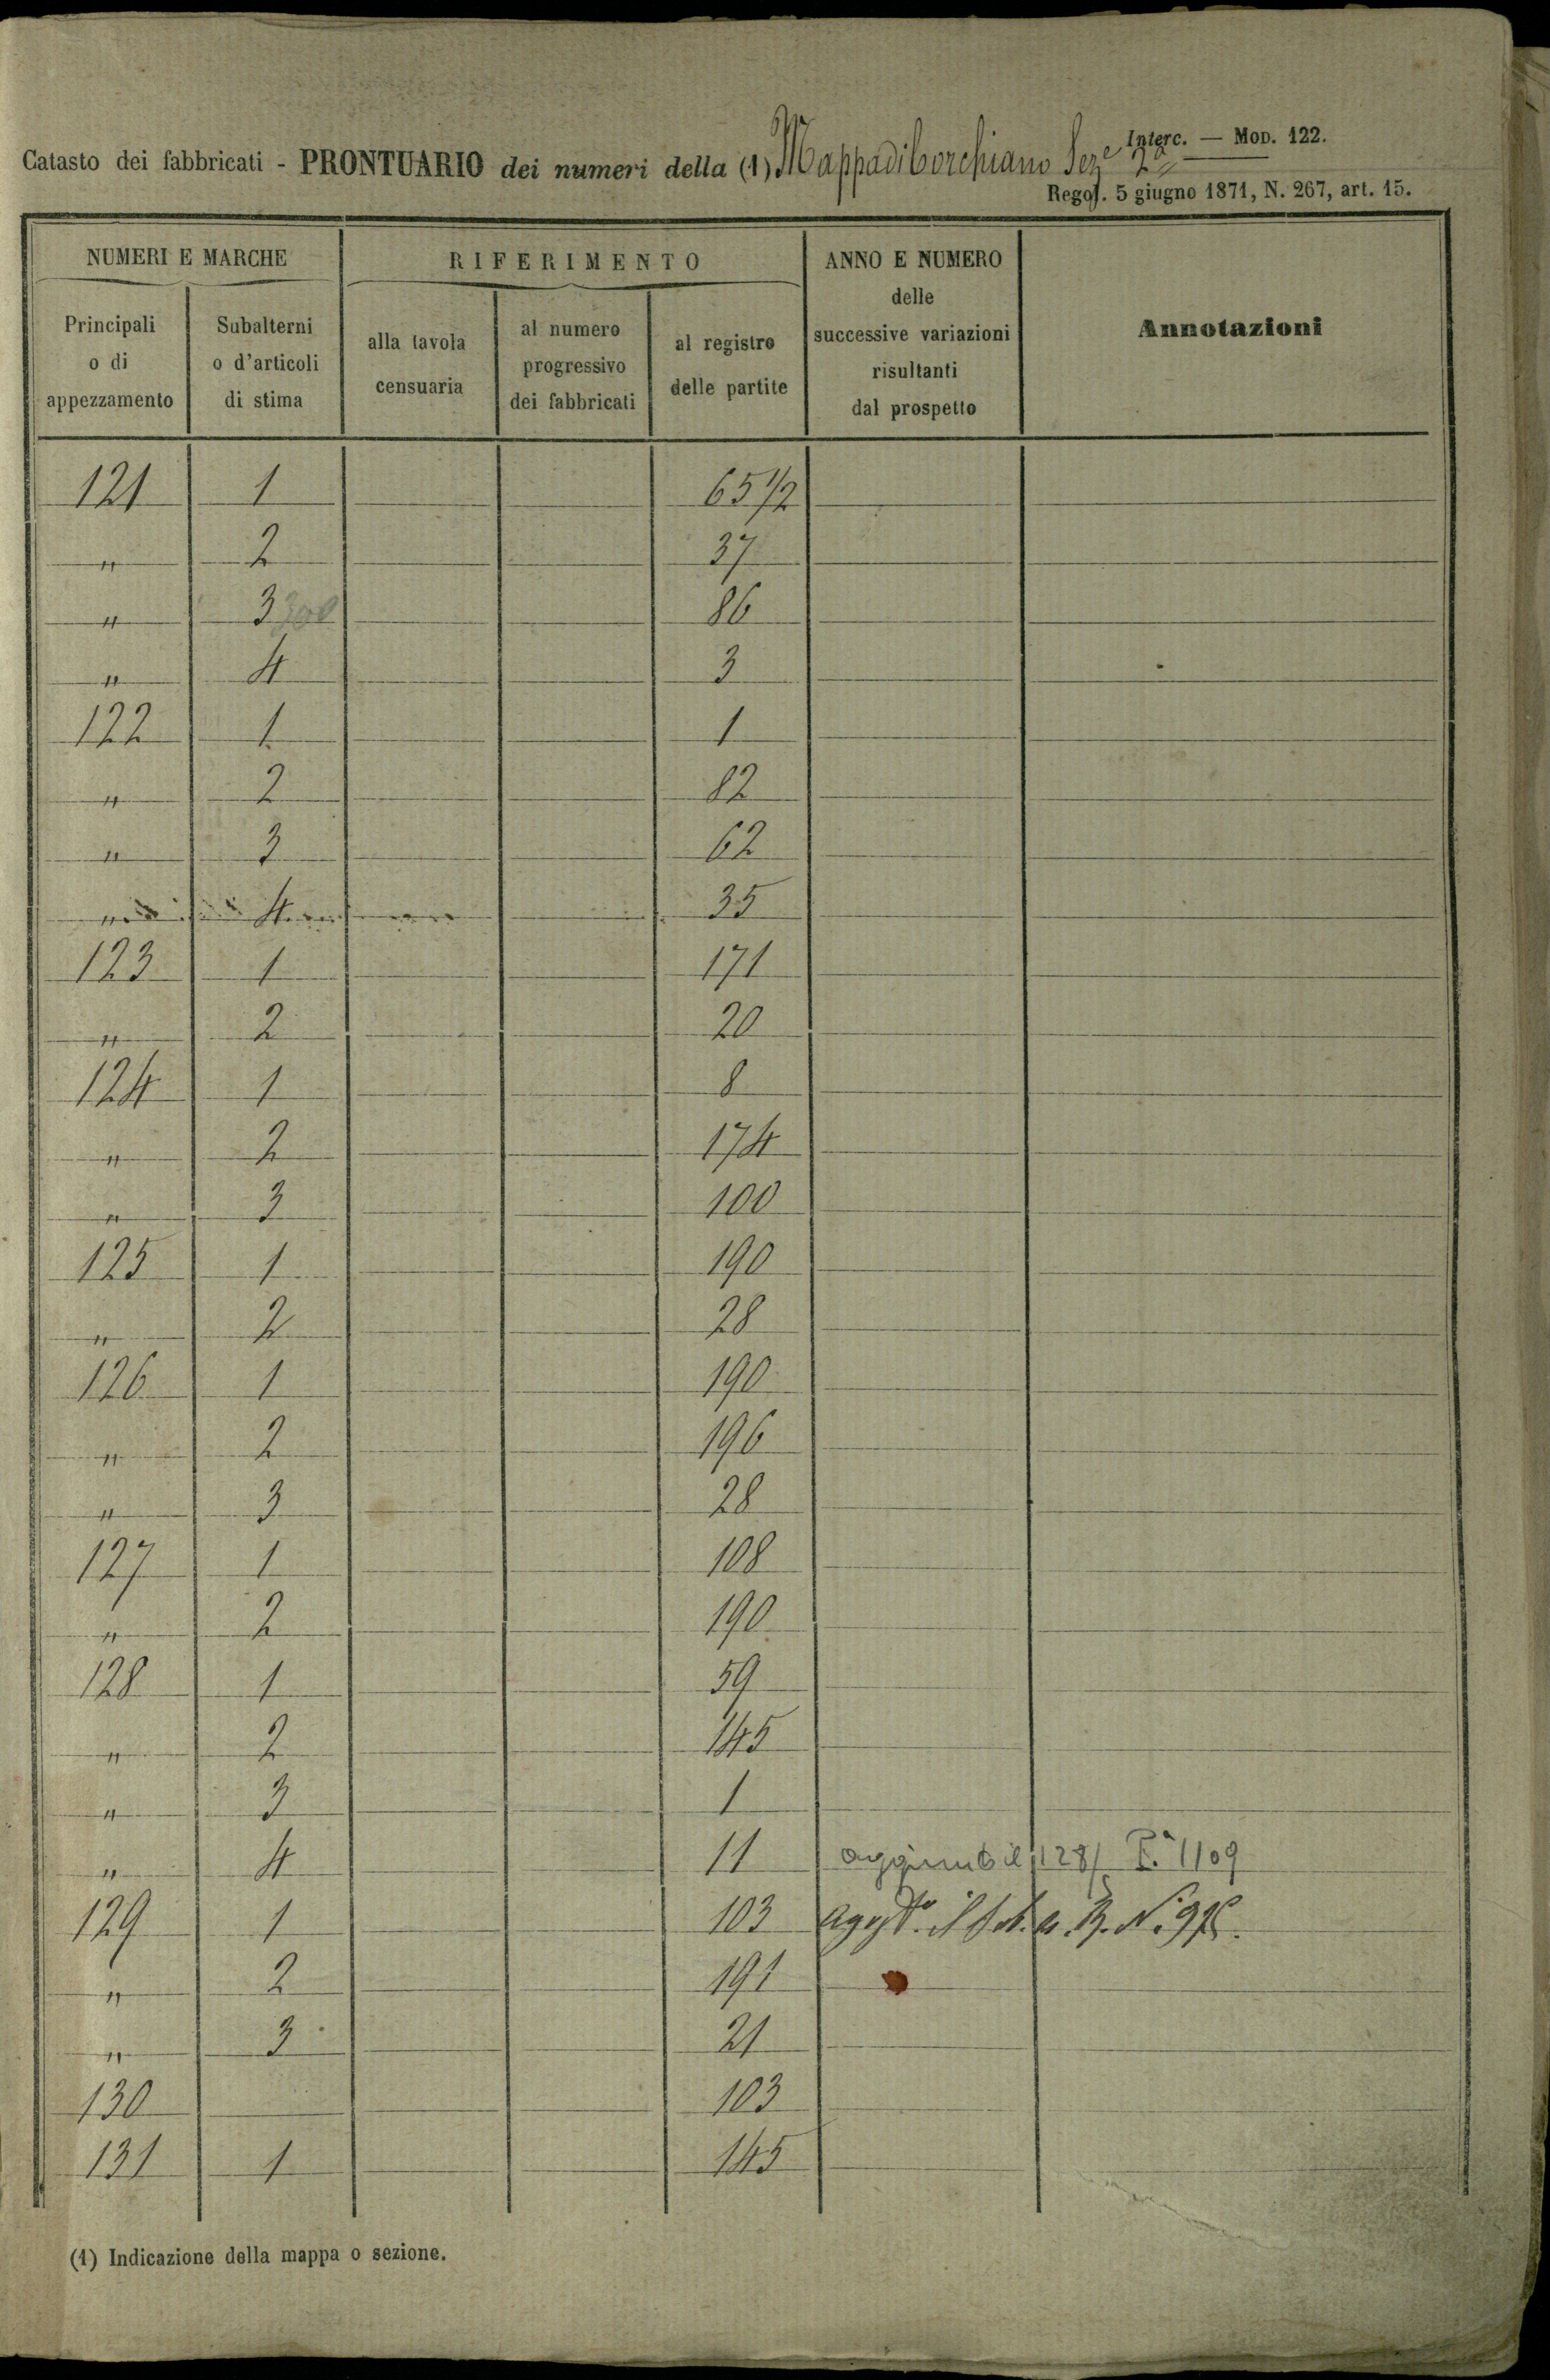 Interc. — Mod. 122.
Catasto dei fabbricati - PRONTUARIO dei numeri della (1) Mappa di Corchiano Sez.e 2a
Regol. 5 giugno 1871, N. 267, art. 15.
NUMERI E MARCHE
RIFERIMENTO
ANNO E NUMERO
delle
successive variazioni
risultanti
dal prospetto
Annotazioni
Principali
o di
appezzamento
Subalterni
o d'articoli
di stima
alla tavola
censuaria
al numero
progressivo
dei fabbricati
al registro
delle partite
121 1 65 1/2
" 2 37
" 3 300 86
" 4 3
122 1 1
" 2 82
" 3 62
" 4 35
123 1 171
" 2 20
124 1 8
" 2 174
" 3 100
125 1 190
" 2 28
126 1 190
" 2 196
" 3 28
127 1 108
" 2 190
128 1 59
" 2 145
" 3 1
" 4 11 128/5 P.a 1109
129 1 103 il
" 2 191
" 3 21
130 103
131 1 145
(1) Indicazione della mappa o sezione.